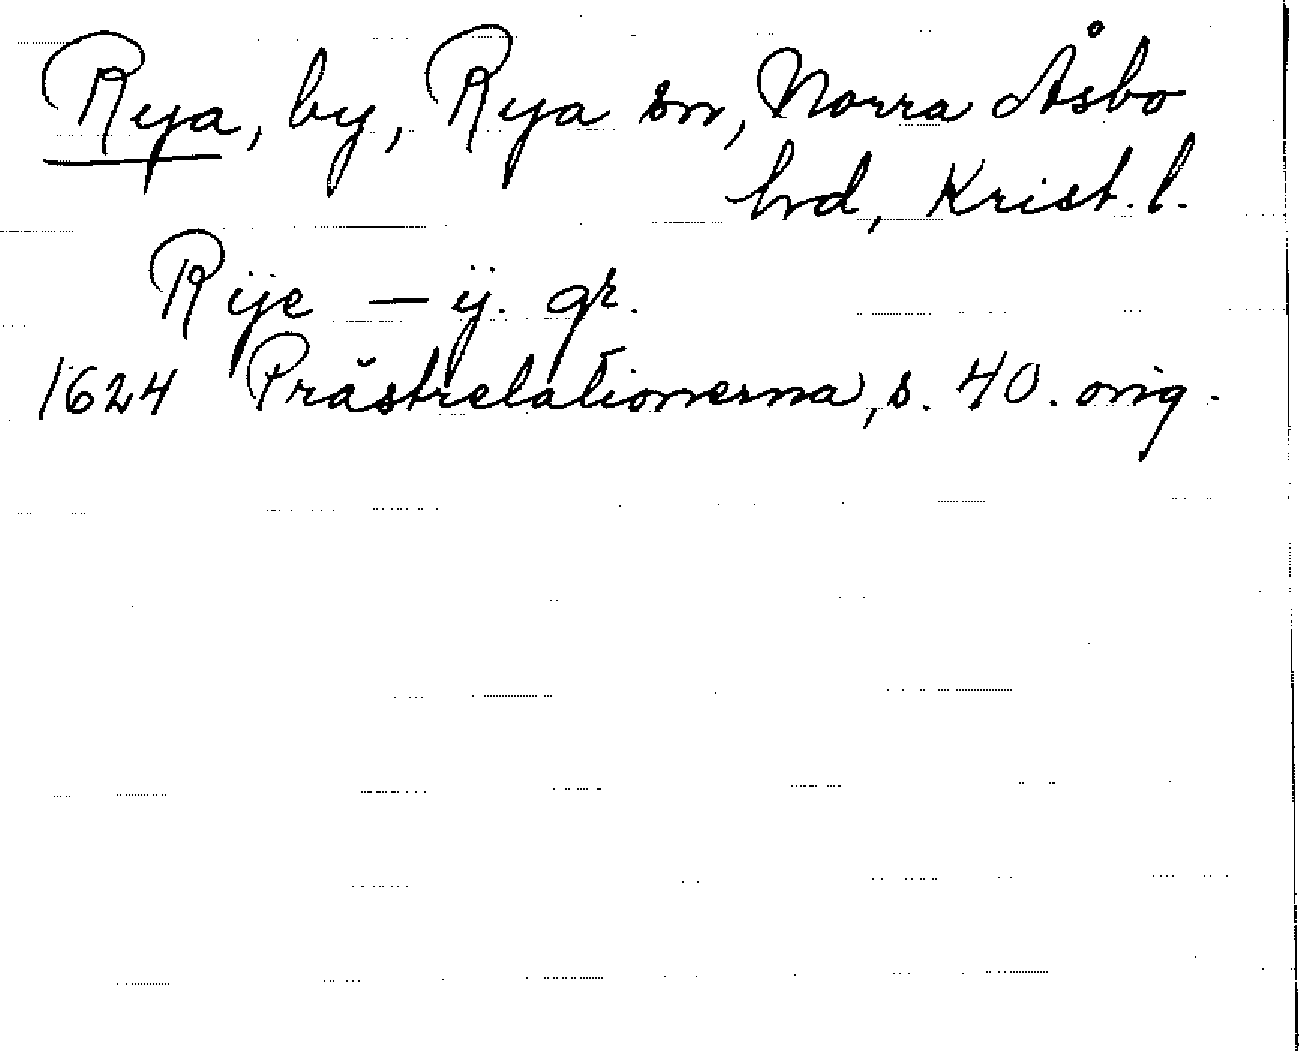 Rya, by, Rya sn, Norra Åsbo
hrd, Krist. l.
Rÿe — ÿ. gr.
1624 Prästrelationerna, s. 40. orig.